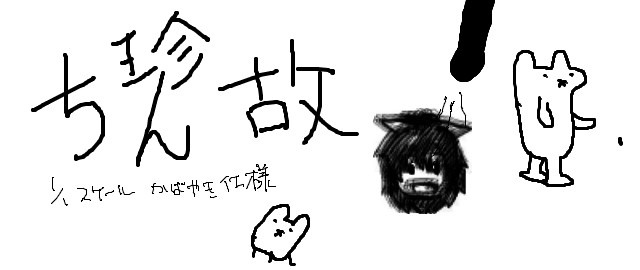 ち珍ん故
1/1 スケール かばやき仕様